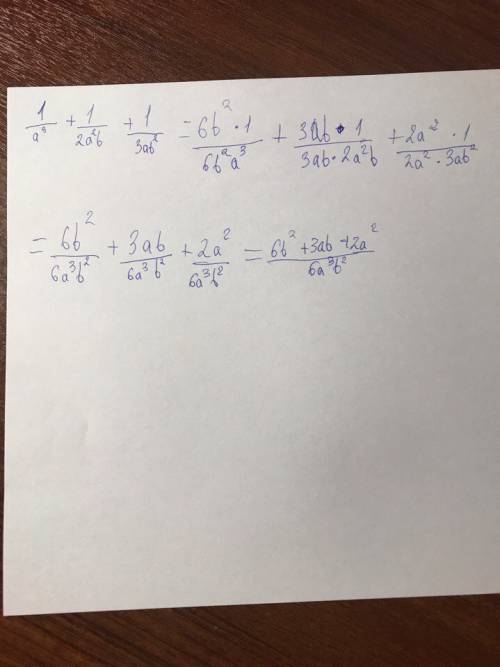 1/a³ + 1/2a²b + 1/3ab² = 6b²·1/6b²a³ + 3ab·1/3ab·2a²b + 2a²·1/2a²·3ab²
= 6b²/6a³b² + 3ab/6a³b² + 2a²/6a³b² = 6b²+3ab+2a²/6a³b²